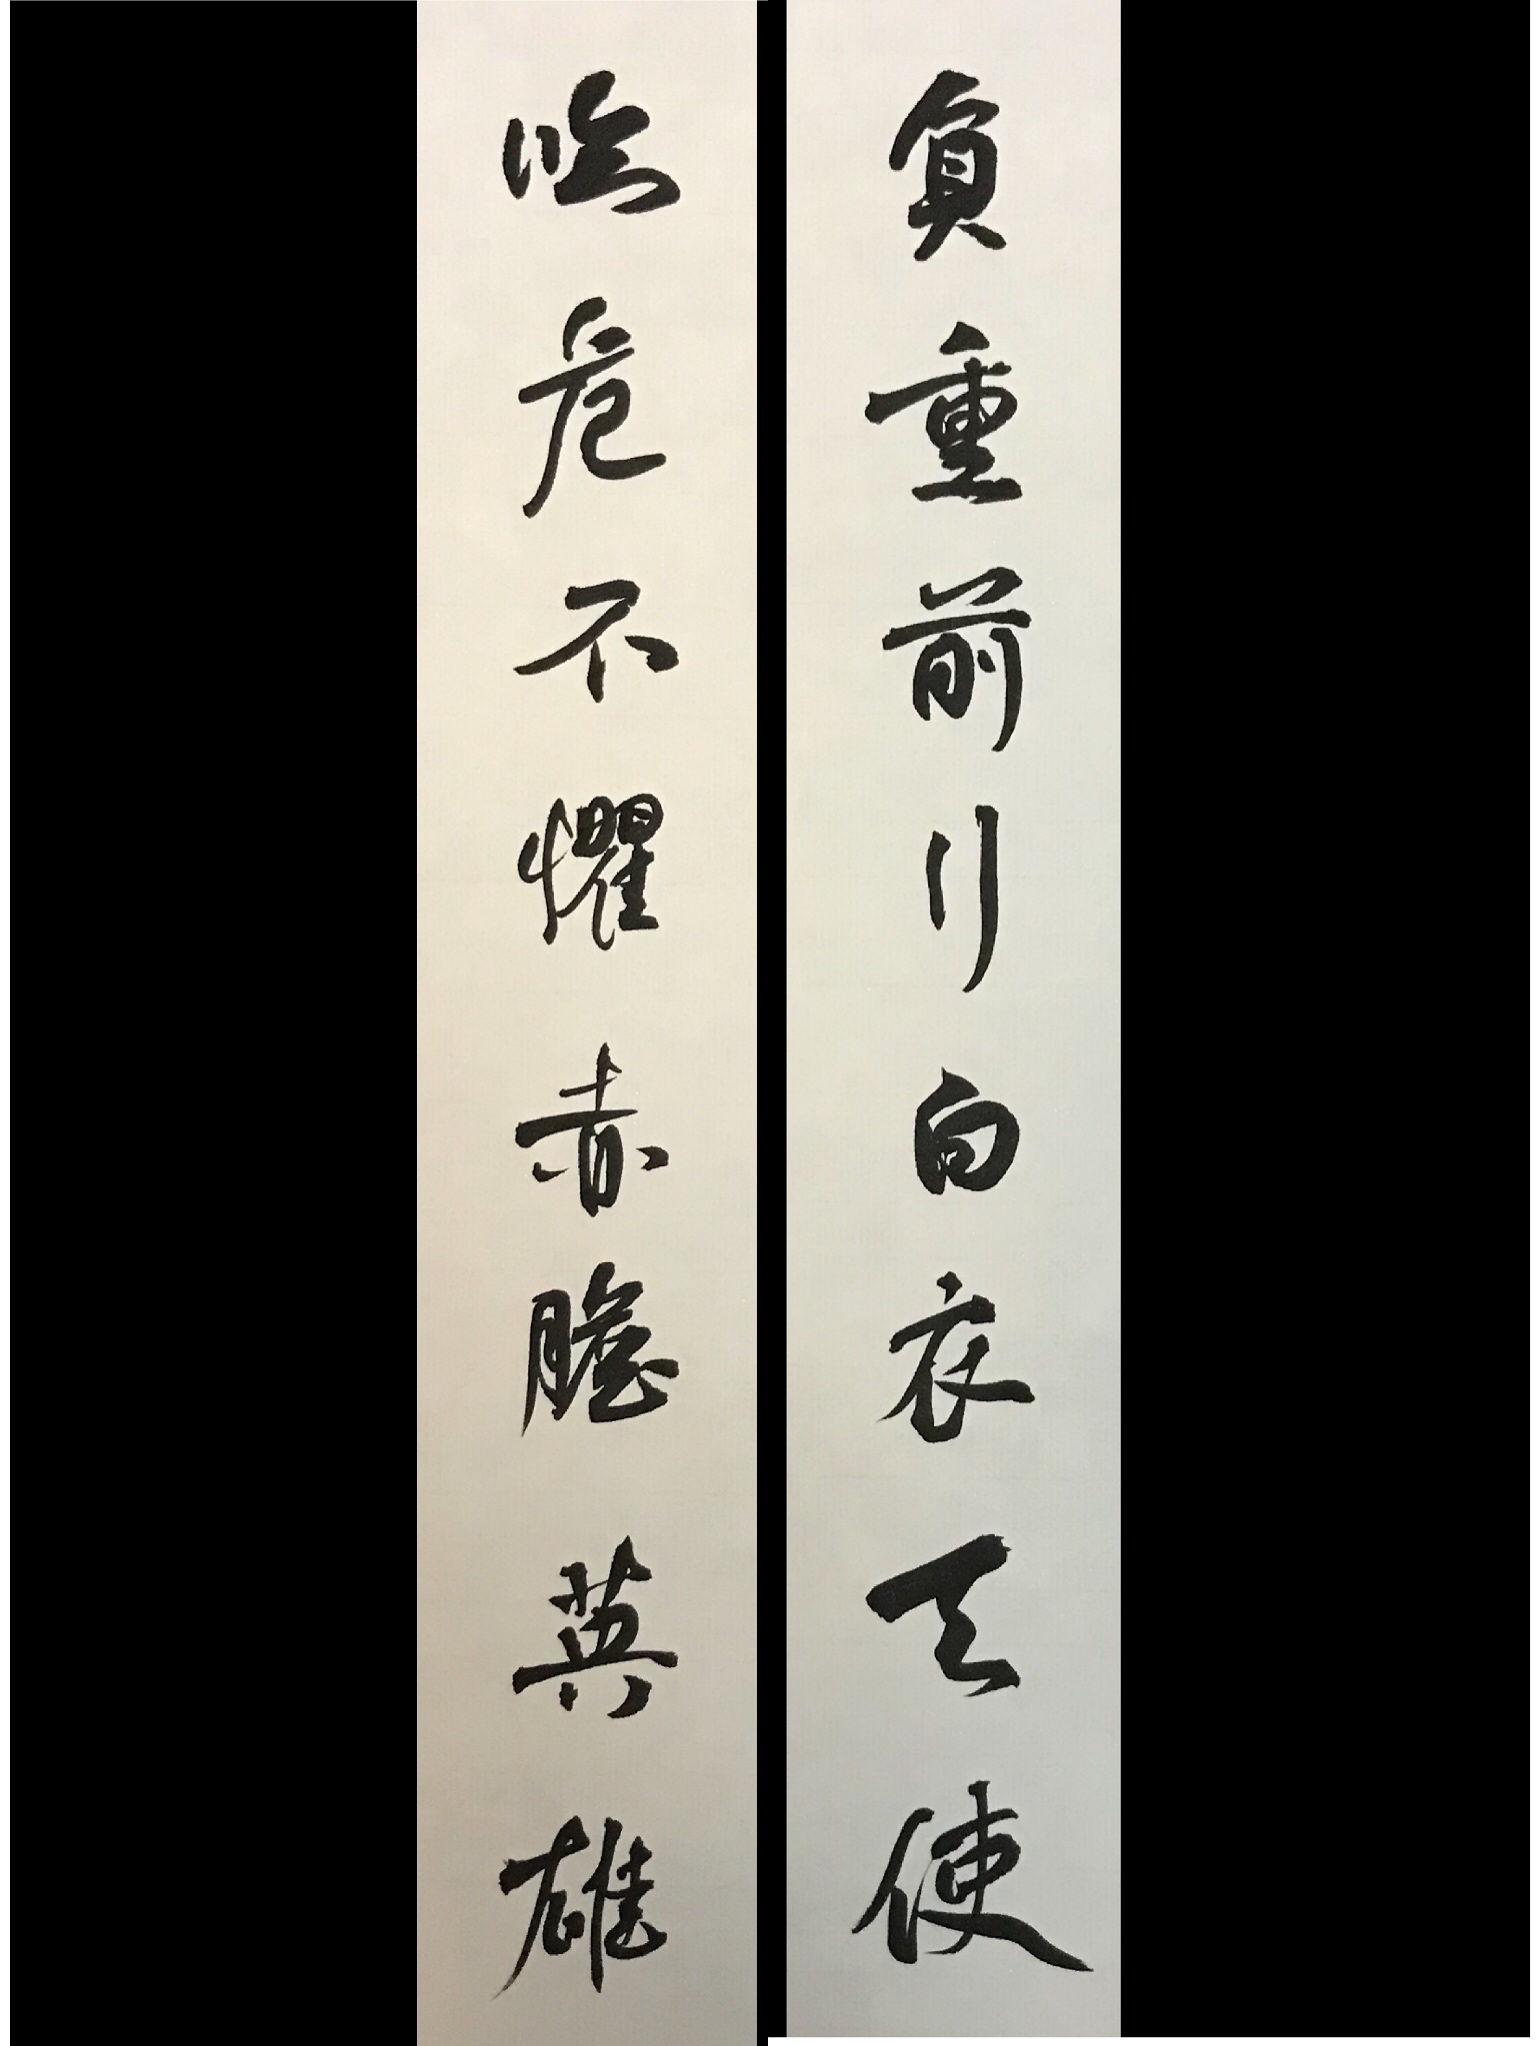 負重前行白衣天使
臨危不懼赤膽英雄